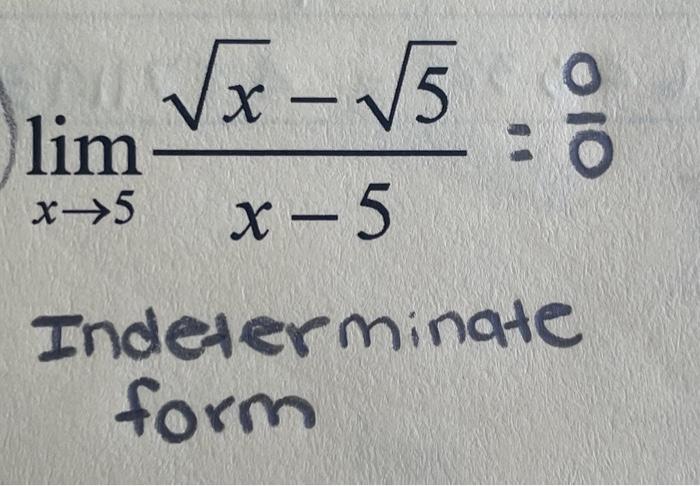 lim x→5 (√x − √5)/(x − 5) = 0/0
Indeterminate
form